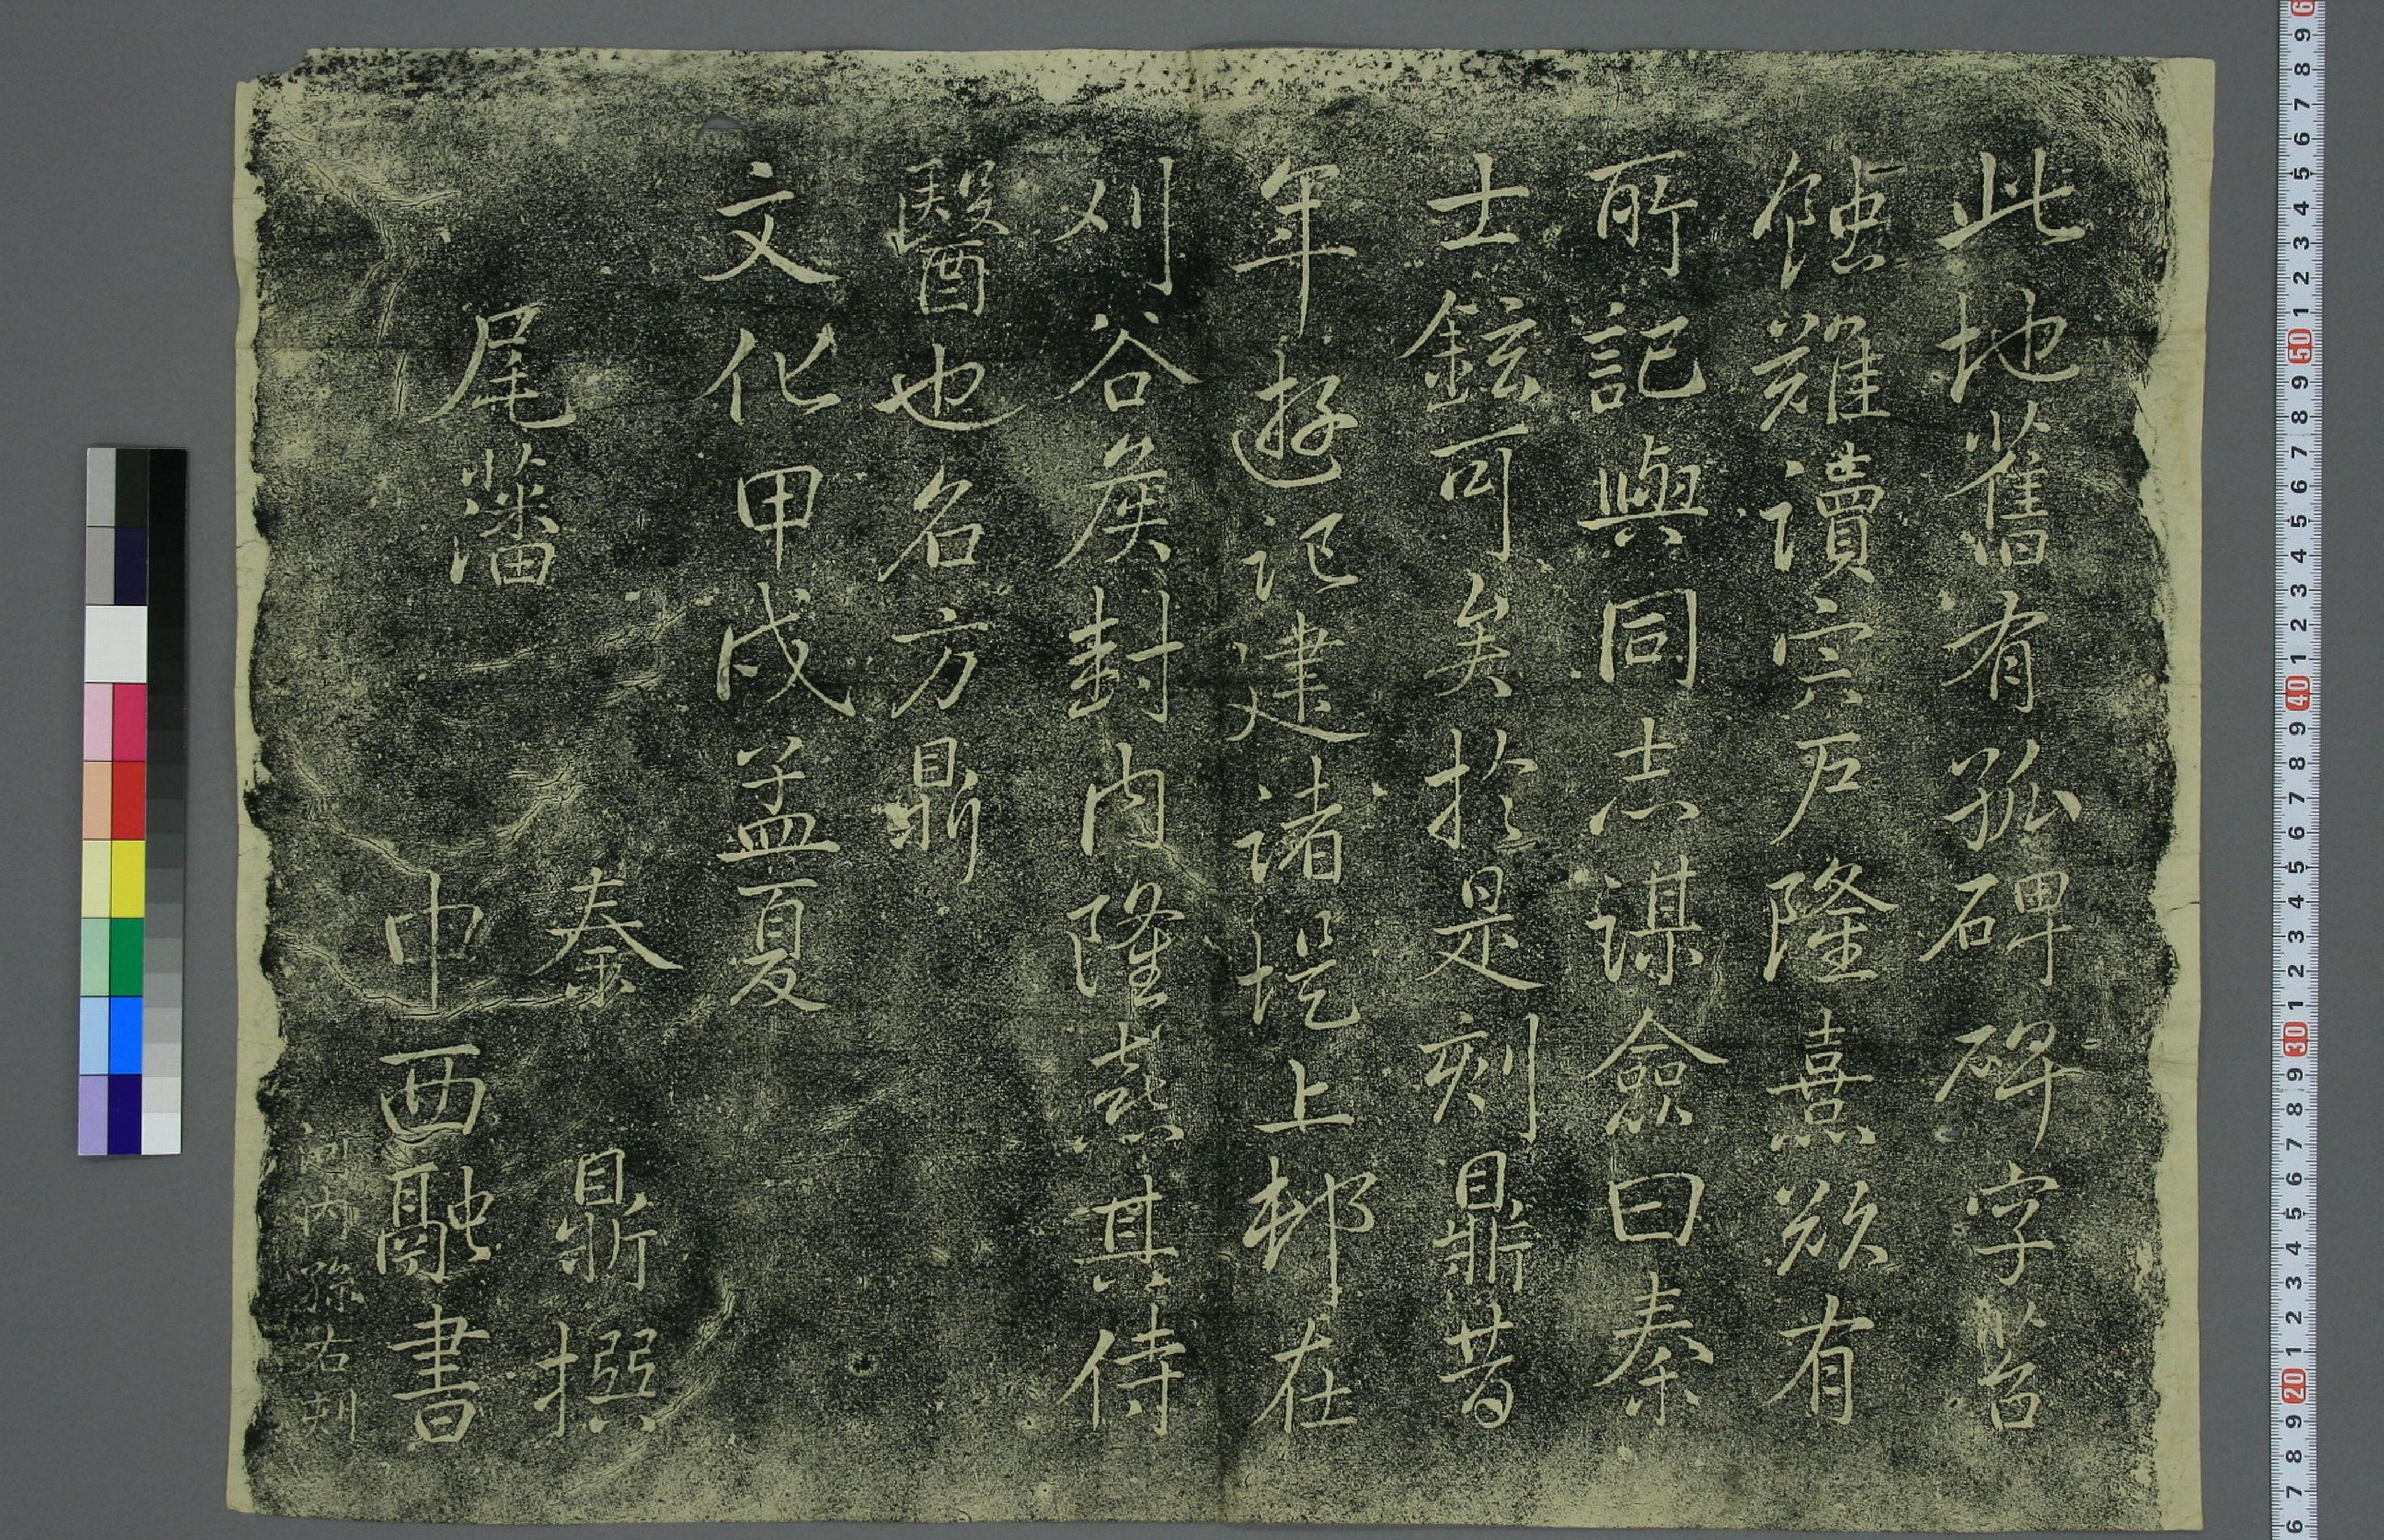 此地舊有孤碑碑字苔
蝕難讀宍戸隆熹欲有
所記與同志謀僉曰秦
士鉉可矣於是刻鼎昔
年遊記建諸堤上邨在
刈谷侯封内隆熹其侍
醫也名方鼎
文化甲戌孟夏
秦鼎撰
尾藩
中西融書
河内孫右刻